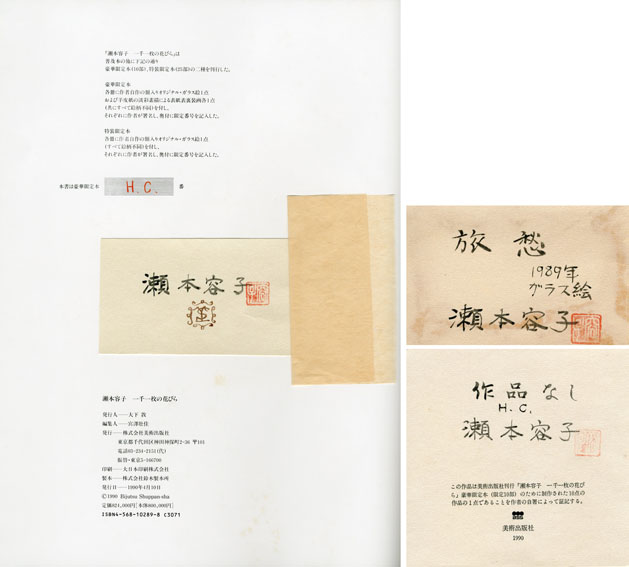 『瀬本容子 一千一枚の花びら』は
普及本の他に下記の通り
豪華限定本(10部)、特装限定本(25部)の二種を刊行した。
豪華限定本
各冊に作者自作の額入りオリジナル・ガラス絵1点
および手漉紙の淡彩素描による表紙表裏装画各1点
(共にすべて絵柄不同)を付し、
それぞれに作者が署名し、奥付に限定番号を記入した。
特装限定本
各冊に作者自作の額入りオリジナル・ガラス絵1点
(すべて絵柄不同)を付し、
それぞれに作者が署名し、奥付に限定番号を記入した。
本書は豪華限定本 H.C. 番
瀬本容子
瀬本容子 一千一枚の花びら
発行人——大下 敦
編集人——宮澤壯佳
発行——株式会社美術出版社
東京都千代田区神田神保町2-36 〒101
電話03-234-2151(代)
振替・東京5-166700
印刷——大日本印刷株式会社
製本——株式会社鈴木製本所
発行日——1990年4月10日
©1990 Bijutsu Shuppan-sha
定価824,000円[本体800,000円]
ISBN4-568-10289-8 C3071
旅愁
1989年
ガラス絵
瀬本容子
作品なし
H.C.
瀬本容子
この作品は美術出版社刊行『瀬本容子 一千一枚の花び
ら』豪華限定本(限定10部)のために制作された10点の
作品の1点であることを作者の自署によって証記する。
美術出版社
1990